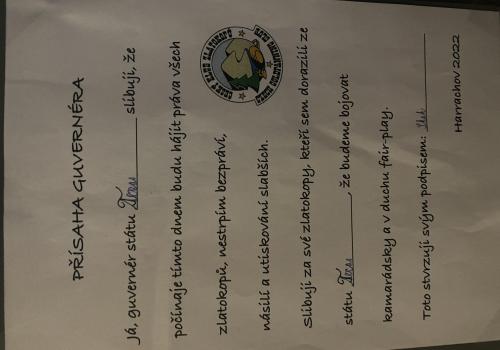 PŘÍSAHA GUVERNÉRA
Já, guvernér státu Texas slibuji, že
počínaje tímto dnem budu hájit práva všech
zlatokopů, nestrpím bezpráví,
násilí a utiskování slabších.
Slibuji za své zlatokopy, kteří sem dorazili ze
státu Texas, že budeme bojovat
kamarádsky a v duchu fair-play.
Toto stvrzuji svým podpisem:
Harrachov 2022
ČESKÝ KLUB ZLATOKOPŮ